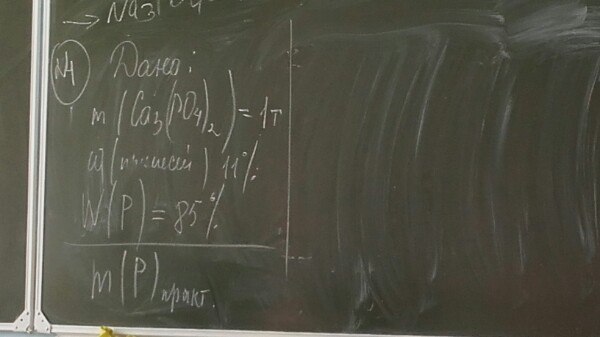 → Na3PO4
№1 Дано:
m (Ca3(PO4)2) = 1т
ω (примесей) 11%
W (P) = 85%
m (P) практ.